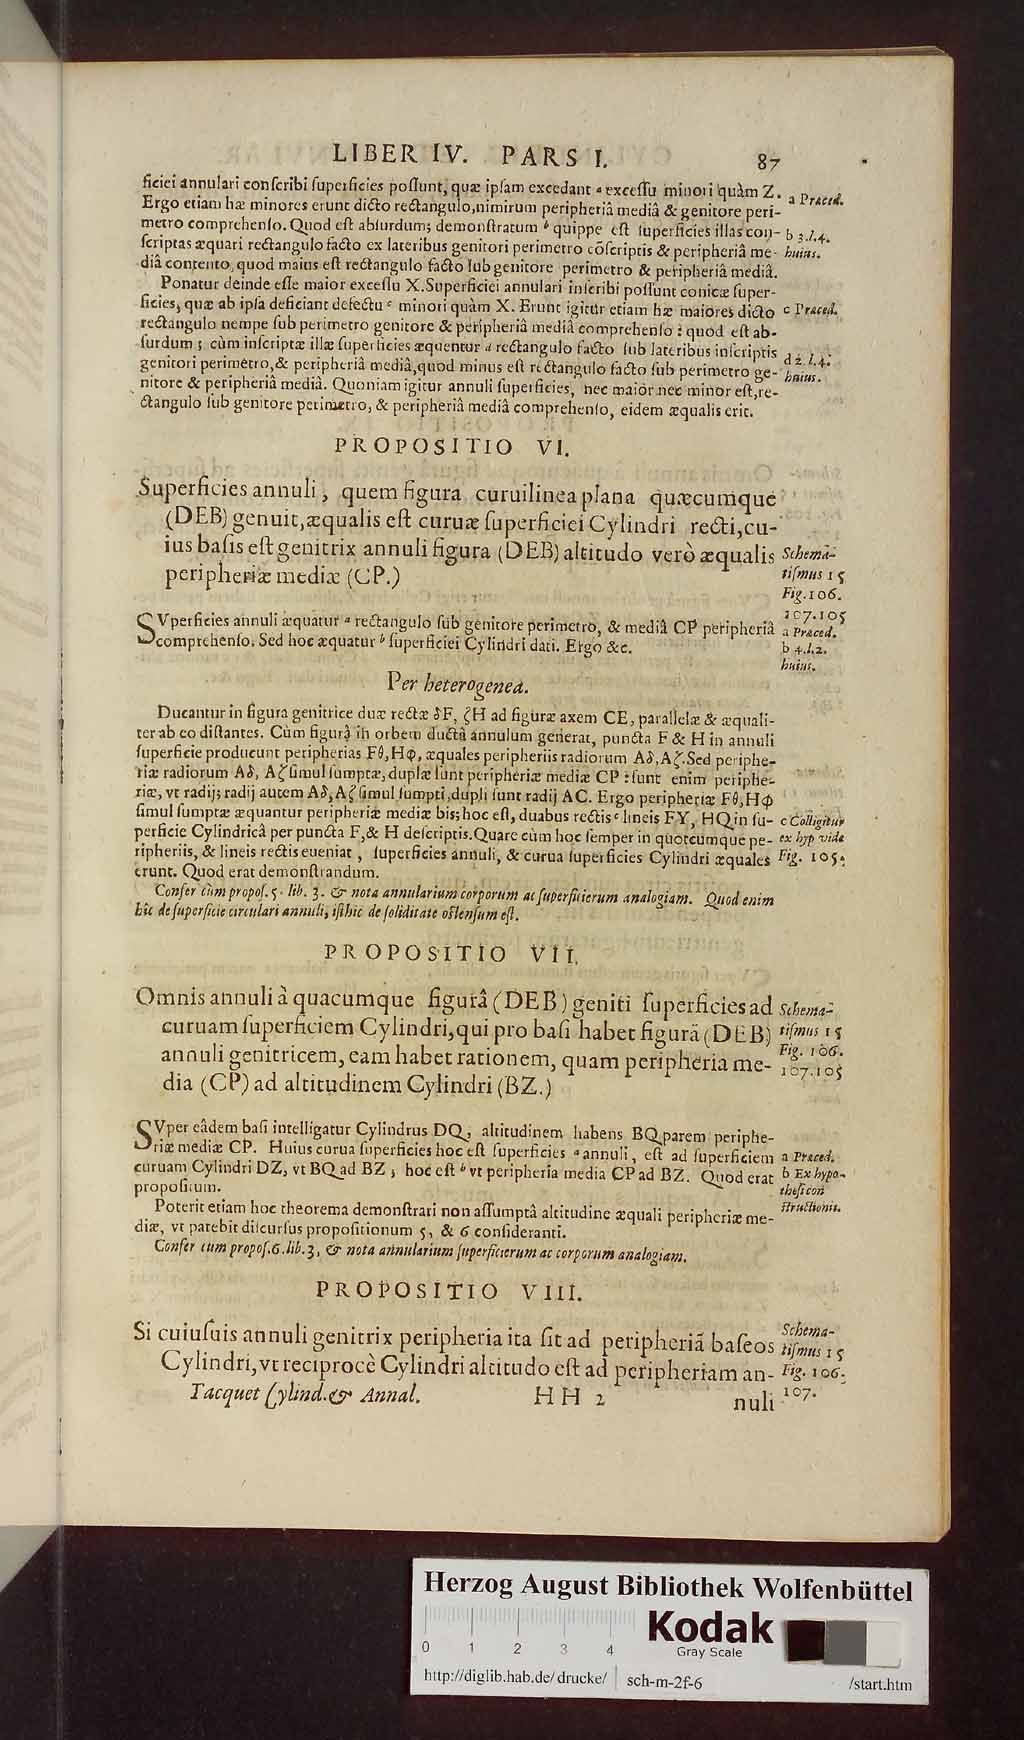 LIBER IV. PARS I. 87
ficiei annulari conſcribi ſuperficies poſſunt, quæ ipſam excedant a exceſſu minori quàm Z. a Præced.
Ergo etiam hæ minores erunt dicto rectangulo, nimirum peripheriâ mediâ & genitore peri-
metro comprehenſo. Quod eſt abſurdum; demonſtratum b quippe eſt ſuperficies illas con- b 3.l.4.
ſcriptas æquari rectangulo facto ex lateribus genitori perimetro cõſcriptis & peripheriâ me- huius.
diâ contento, quod maius eſt rectangulo facto ſub genitore perimetro & peripheriâ mediâ.
Ponatur deinde eſſe maior exceſſu X. Superficiei annulari inſcribi poſſunt conicæ ſuper-
ficies, quæ ab ipſa deficiant defectu c minori quàm X. Erunt igitur etiam hæ maiores dicto c Præced.
rectangulo nempe ſub perimetro genitore & peripheriâ mediâ comprehenſo: quod eſt ab-
ſurdum; cùm inſcriptæ illæ ſuperficies æquentur d rectangulo facto ſub lateribus inſcriptis d 2.l.4.
genitori perimetro, & peripheriâ mediâ, quod minus eſt rectangulo facto ſub perimetro ge- huius.
nitore & peripheriâ mediâ. Quoniam igitur annuli ſuperficies, nec maior nec minor eſt, re-
ctangulo ſub genitore perimetro, & peripheriâ mediâ comprehenſo, eidem æqualis erit.
PROPOSITIO VI.
Superficies annuli, quem figura curuilinea plana quæcumque
(DEB) genuit, æqualis eſt curuæ ſuperficiei Cylindri recti, cu-
ius baſis eſt genitrix annuli figura (DEB) altitudo verò æqualis Schema-
peripheriæ mediæ (CP.) tiſmus 15
Fig. 106.
107.105
SVperficies annuli æquatur a rectangulo ſub genitore perimetro, & mediâ CP peripheriâ a Præced.
comprehenſo. Sed hoc æquatur b ſuperficiei Cylindri dati. Ergo &c. b 4.l.2.
huius.
Per heterogenea.
Ducantur in figura genitrice duæ rectæ δF, ζH ad figuræ axem CE, parallelæ & æquali-
ter ab eo diſtantes. Cùm figurâ in orbem ductâ annulum generat, puncta F & H in annuli
ſuperficie producunt peripherias Fθ, HΦ, æquales peripheriis radiorum Aδ, Aζ. Sed periphe-
riæ radiorum Aδ, Aζ ſimul ſumptæ, duplæ ſunt peripheriæ mediæ CP: ſunt enim periphe-
riæ, vt radij; radij autem Aδ, Aζ ſimul ſumpti, dupli ſunt radij AC. Ergo peripheriæ Fθ, HΦ
ſimul ſumptæ æquantur peripheriæ mediæ bis; hoc eſt, duabus rectis c lineis FY, HQ in ſu- c Colligitur
perficie Cylindricâ per puncta F, & H deſcriptis. Quare cùm hoc ſemper in quotcumque pe- ex hyp vide
ripheriis, & lineis rectis eueniat, ſuperficies annuli, & curua ſuperficies Cylindri æquales Fig. 105.
erunt. Quod erat demonſtrandum.
Confer cùm propoſ. 5. lib. 3. & nota annularium corporum ac ſuperficierum analogiam. Quod enim
hîc de ſuperficie circulari annuli, iſthic de ſoliditate oſtenſum eſt.
PROPOSITIO VII.
Omnis annuli à quacumque figurâ (DEB) geniti ſuperficies ad Schema-
curuam ſuperficiem Cylindri, qui pro baſi habet figurã (DEB) tiſmus 15
annuli genitricem, eam habet rationem, quam peripheria me- Fig. 106.
dia (CP) ad altitudinem Cylindri (BZ.) 107.105
SVper eâdem baſi intelligatur Cylindrus DQ, altitudinem habens BQ parem periphe-
riæ mediæ CP. Huius curua ſuperficies hoc eſt ſuperficies a annuli, eſt ad ſuperficiem a Præced.
curuam Cylindri DZ, vt BQ ad BZ, hoc eſt b vt peripheria media CP ad BZ. Quod erat b Ex hypo-
propoſitum. theſi con
Poterit etiam hoc theorema demonſtrari non aſſumptâ altitudine æquali peripheriæ me- ſtructionis.
diæ, vt patebit diſcurſus propoſitionum 5, & 6 conſideranti.
Confer cum propoſ. 6. lib. 3, & nota annularium ſuperficierum ac corporum analogiam.
PROPOSITIO VIII.
Si cuiuſuis annuli genitrix peripheria ita ſit ad peripheriã baſeos Schema-
tiſmus 15
Cylindri, vt reciprocè Cylindri altitudo eſt ad peripheriam an- Fig. 106.
Tacquet Cylind. & Annal. HH 2 nuli 107.
Herzog August Bibliothek Wolfenbüttel
0 1 2 3 4
Kodak
Gray Scale
http://diglib.hab.de/drucke/ sch-m-2f-6 /start.htm